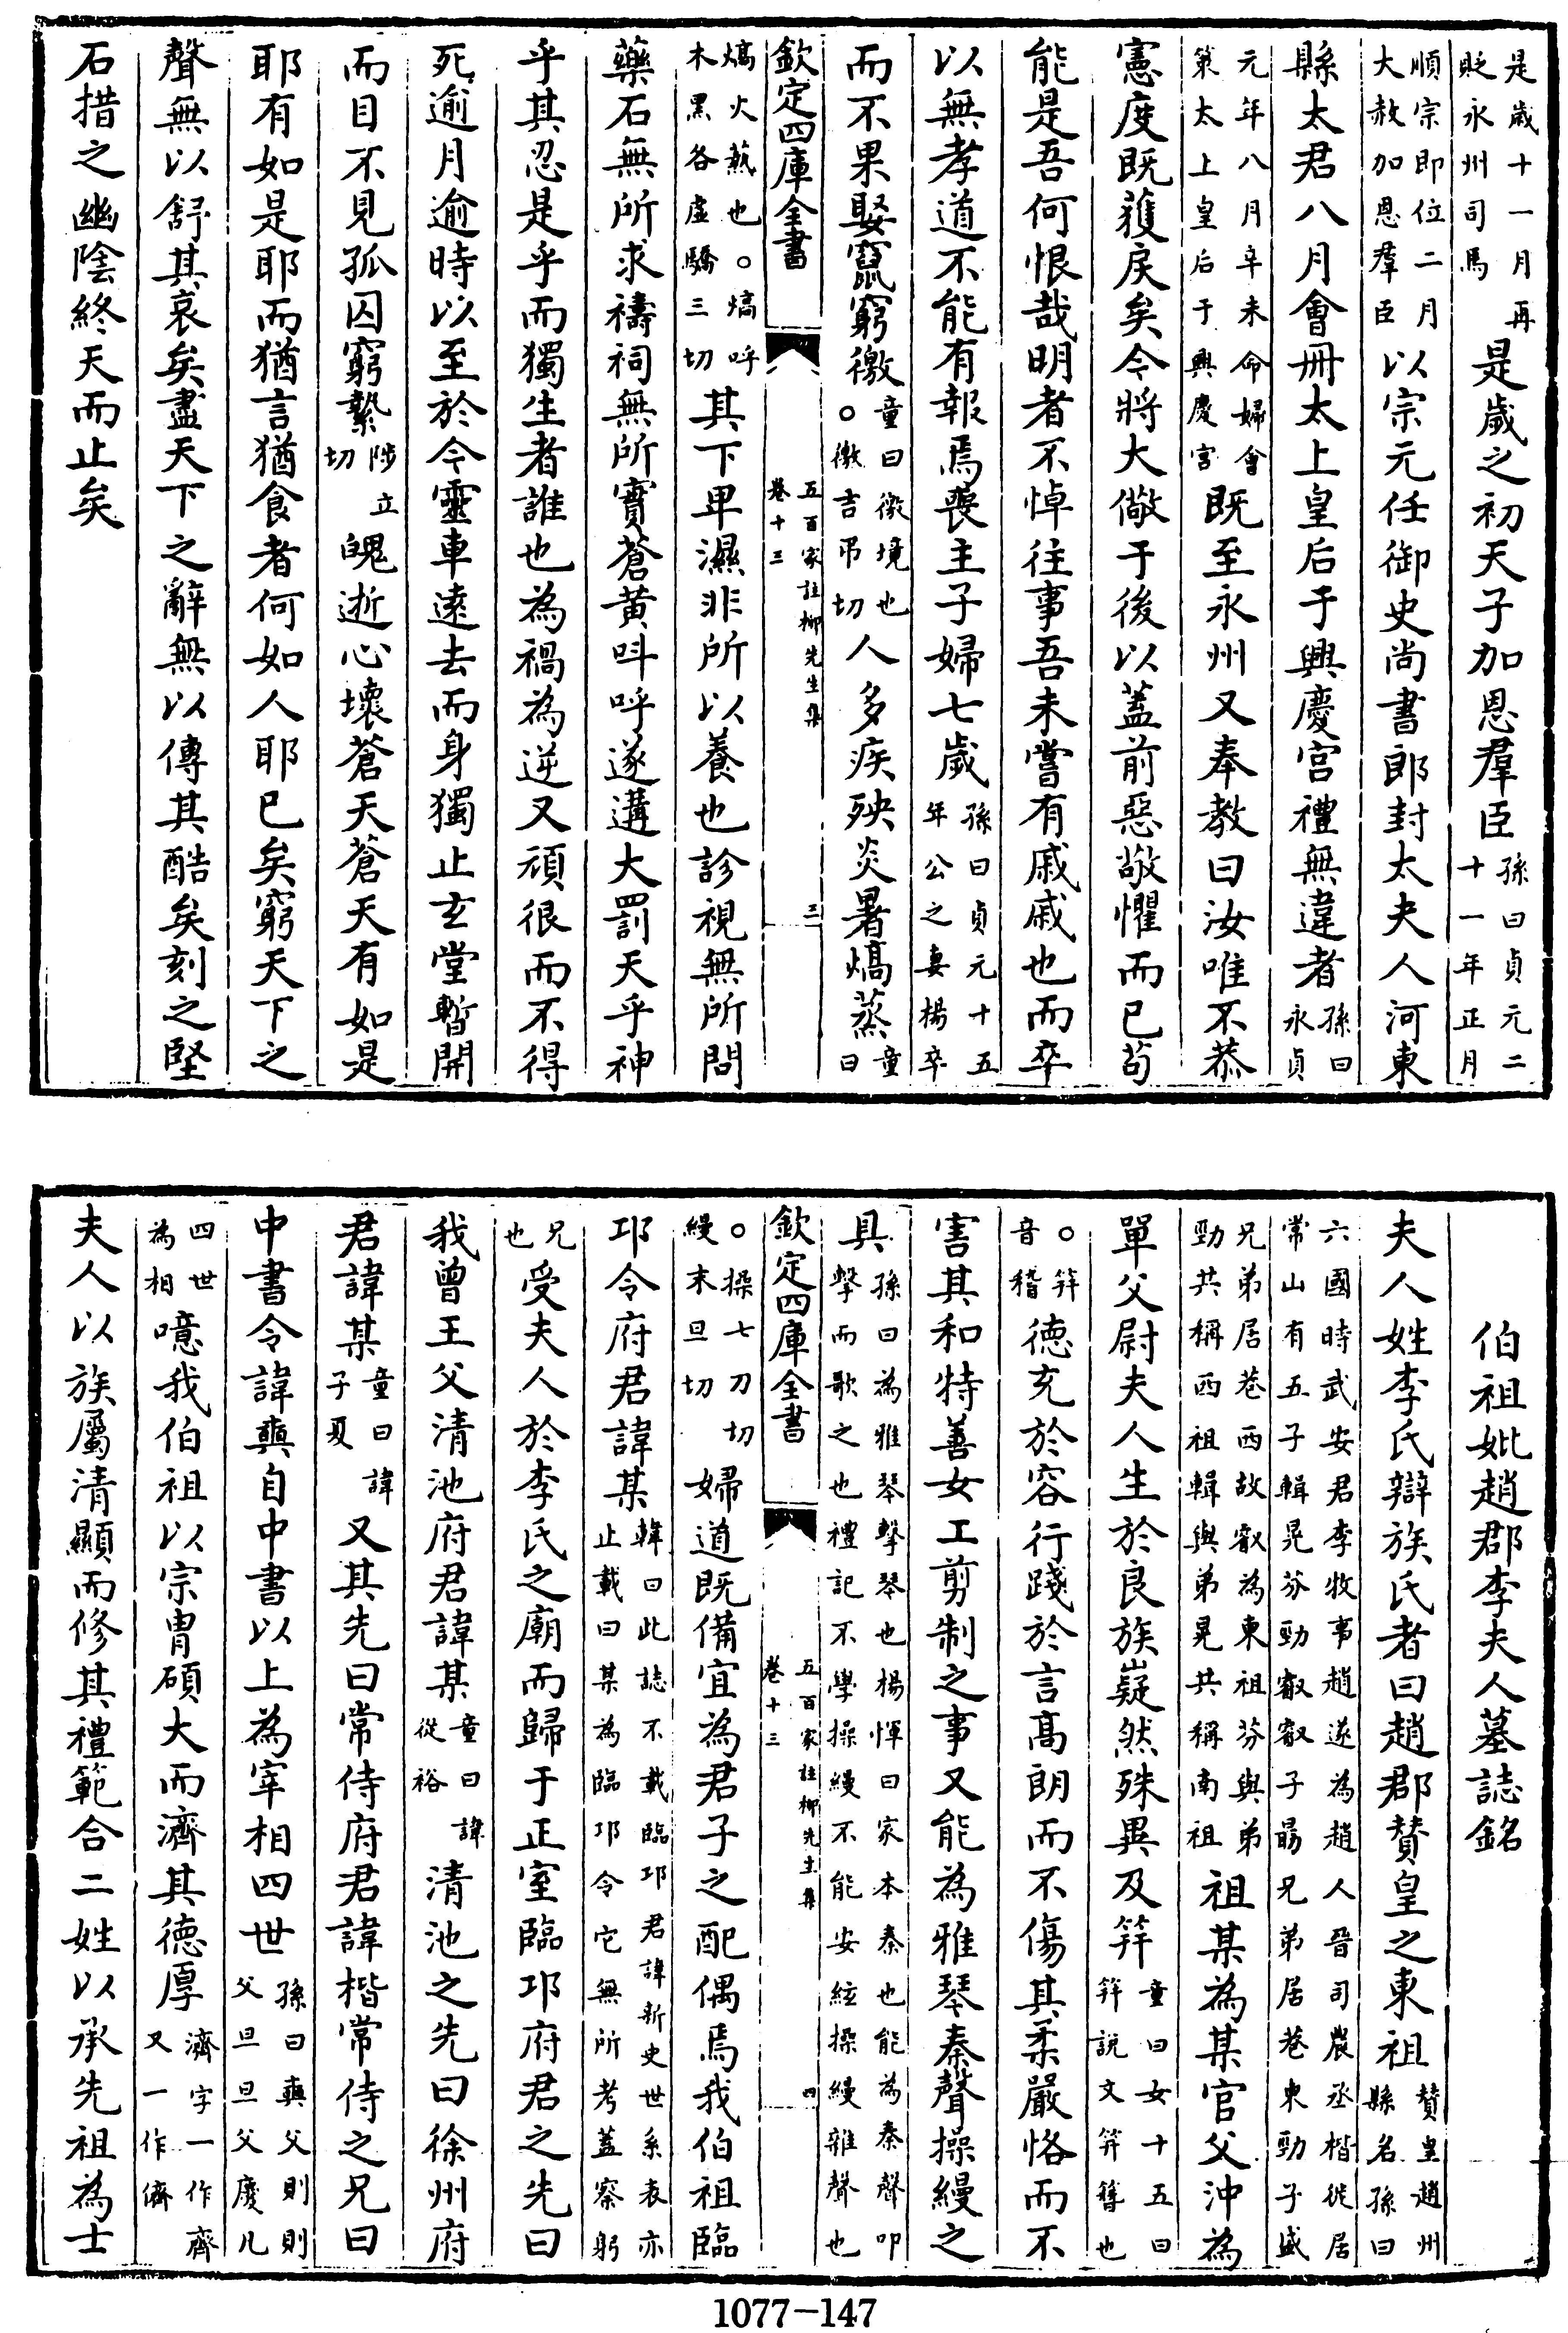 是歳十一月再貶永州司馬是歳之初天子加恩羣臣孫曰貞元二十一年正月
順宗即位二月大赦加恩羣臣以宗元任御史尚書郎封太夫人河東
縣太君八月會冊太上皇后于興慶宫禮無違者孫曰永貞
元年八月辛未命婦會策太上皇后于興慶宫既至永州又奉教曰汝唯不恭
憲度既獲戾矣今將大儆于後以蓋前惡敬懼而已苟
能是吾何恨哉明者不悼往事吾未嘗有戚戚也而卒
以無孝道不能有報焉喪主子婦七歳孫曰貞元十五年公之妻楊卒
而不果娶竄窮徼童曰徼境也。徼吉弔切人多疾殃炎暑熇蒸童曰
欽定四庫全書 五百家註柳先生集 卷十三 三
熇火熱也。熇呼木黒各虚驕三切其下卑濕非所以養也診視無所問
藥石無所求禱祠無所實蒼黄呌呼遂遘大罰天乎神
乎其忍是乎而獨生者誰也為禍為逆又頑很而不得
死逾月逾時以至於今靈車遠去而身獨止玄堂暫開
而目不見孤囚窮縶陟立切魄逝心壊蒼天蒼天有如是
耶有如是耶而猶言猶食者何如人耶已矣窮天下之
聲無以舒其哀矣盡天下之辭無以傳其酷矣刻之堅
石措之幽陰終天而止矣
伯祖妣趙郡李夫人墓誌銘
夫人姓李氏辯族氏者曰趙郡贊皇之東祖贊皇趙州縣名孫曰
六國時武安君李牧事趙遂為趙人晉司農丞楷徙居常山有五子輯晃芬勁叡叡子朂兄弟居巷東勁子盛
兄弟居巷西故叡為東祖芬與弟勁共稱西祖輯與弟晃共稱南祖祖某為某官父沖為
單父尉夫人生於良族嶷然殊異及笄童曰女十五曰笄説文笄簪也
。笄音稽德充於容行踐於言高朗而不傷其柔嚴恪而不
害其和特善女工剪制之事又能為雅琴秦聲操縵之
具孫曰為雅琴聲琴也楊惲曰家本秦也能為秦聲叩擊而歌之也禮記不學操縵不能安絃操縵雜聲也
欽定四庫全書 五百家註柳先生集 卷十三 四
。操七刀切縵末旦切婦道既備宜為君子之配偶焉我伯祖臨
邛令府君諱某韓曰此誌不載臨邛君諱新史世系表亦止載曰某為臨邛令它無所考蓋察躬
兄也受夫人於李氏之廟而歸于正室臨邛府君之先曰
我曾王父清池府君諱某童曰諱從裕清池之先曰徐州府
君諱某童曰諱子夏又其先曰常侍府君諱楷常侍之兄曰
中書令諱奭自中書以上為宰相四世孫曰奭父則則父旦旦父慶凡
四世為相噫我伯祖以宗胄碩大而濟其德厚濟字一作齊又一作儕
夫人以族屬清顯而修其禮範合二姓以承先祖為士
1077-147